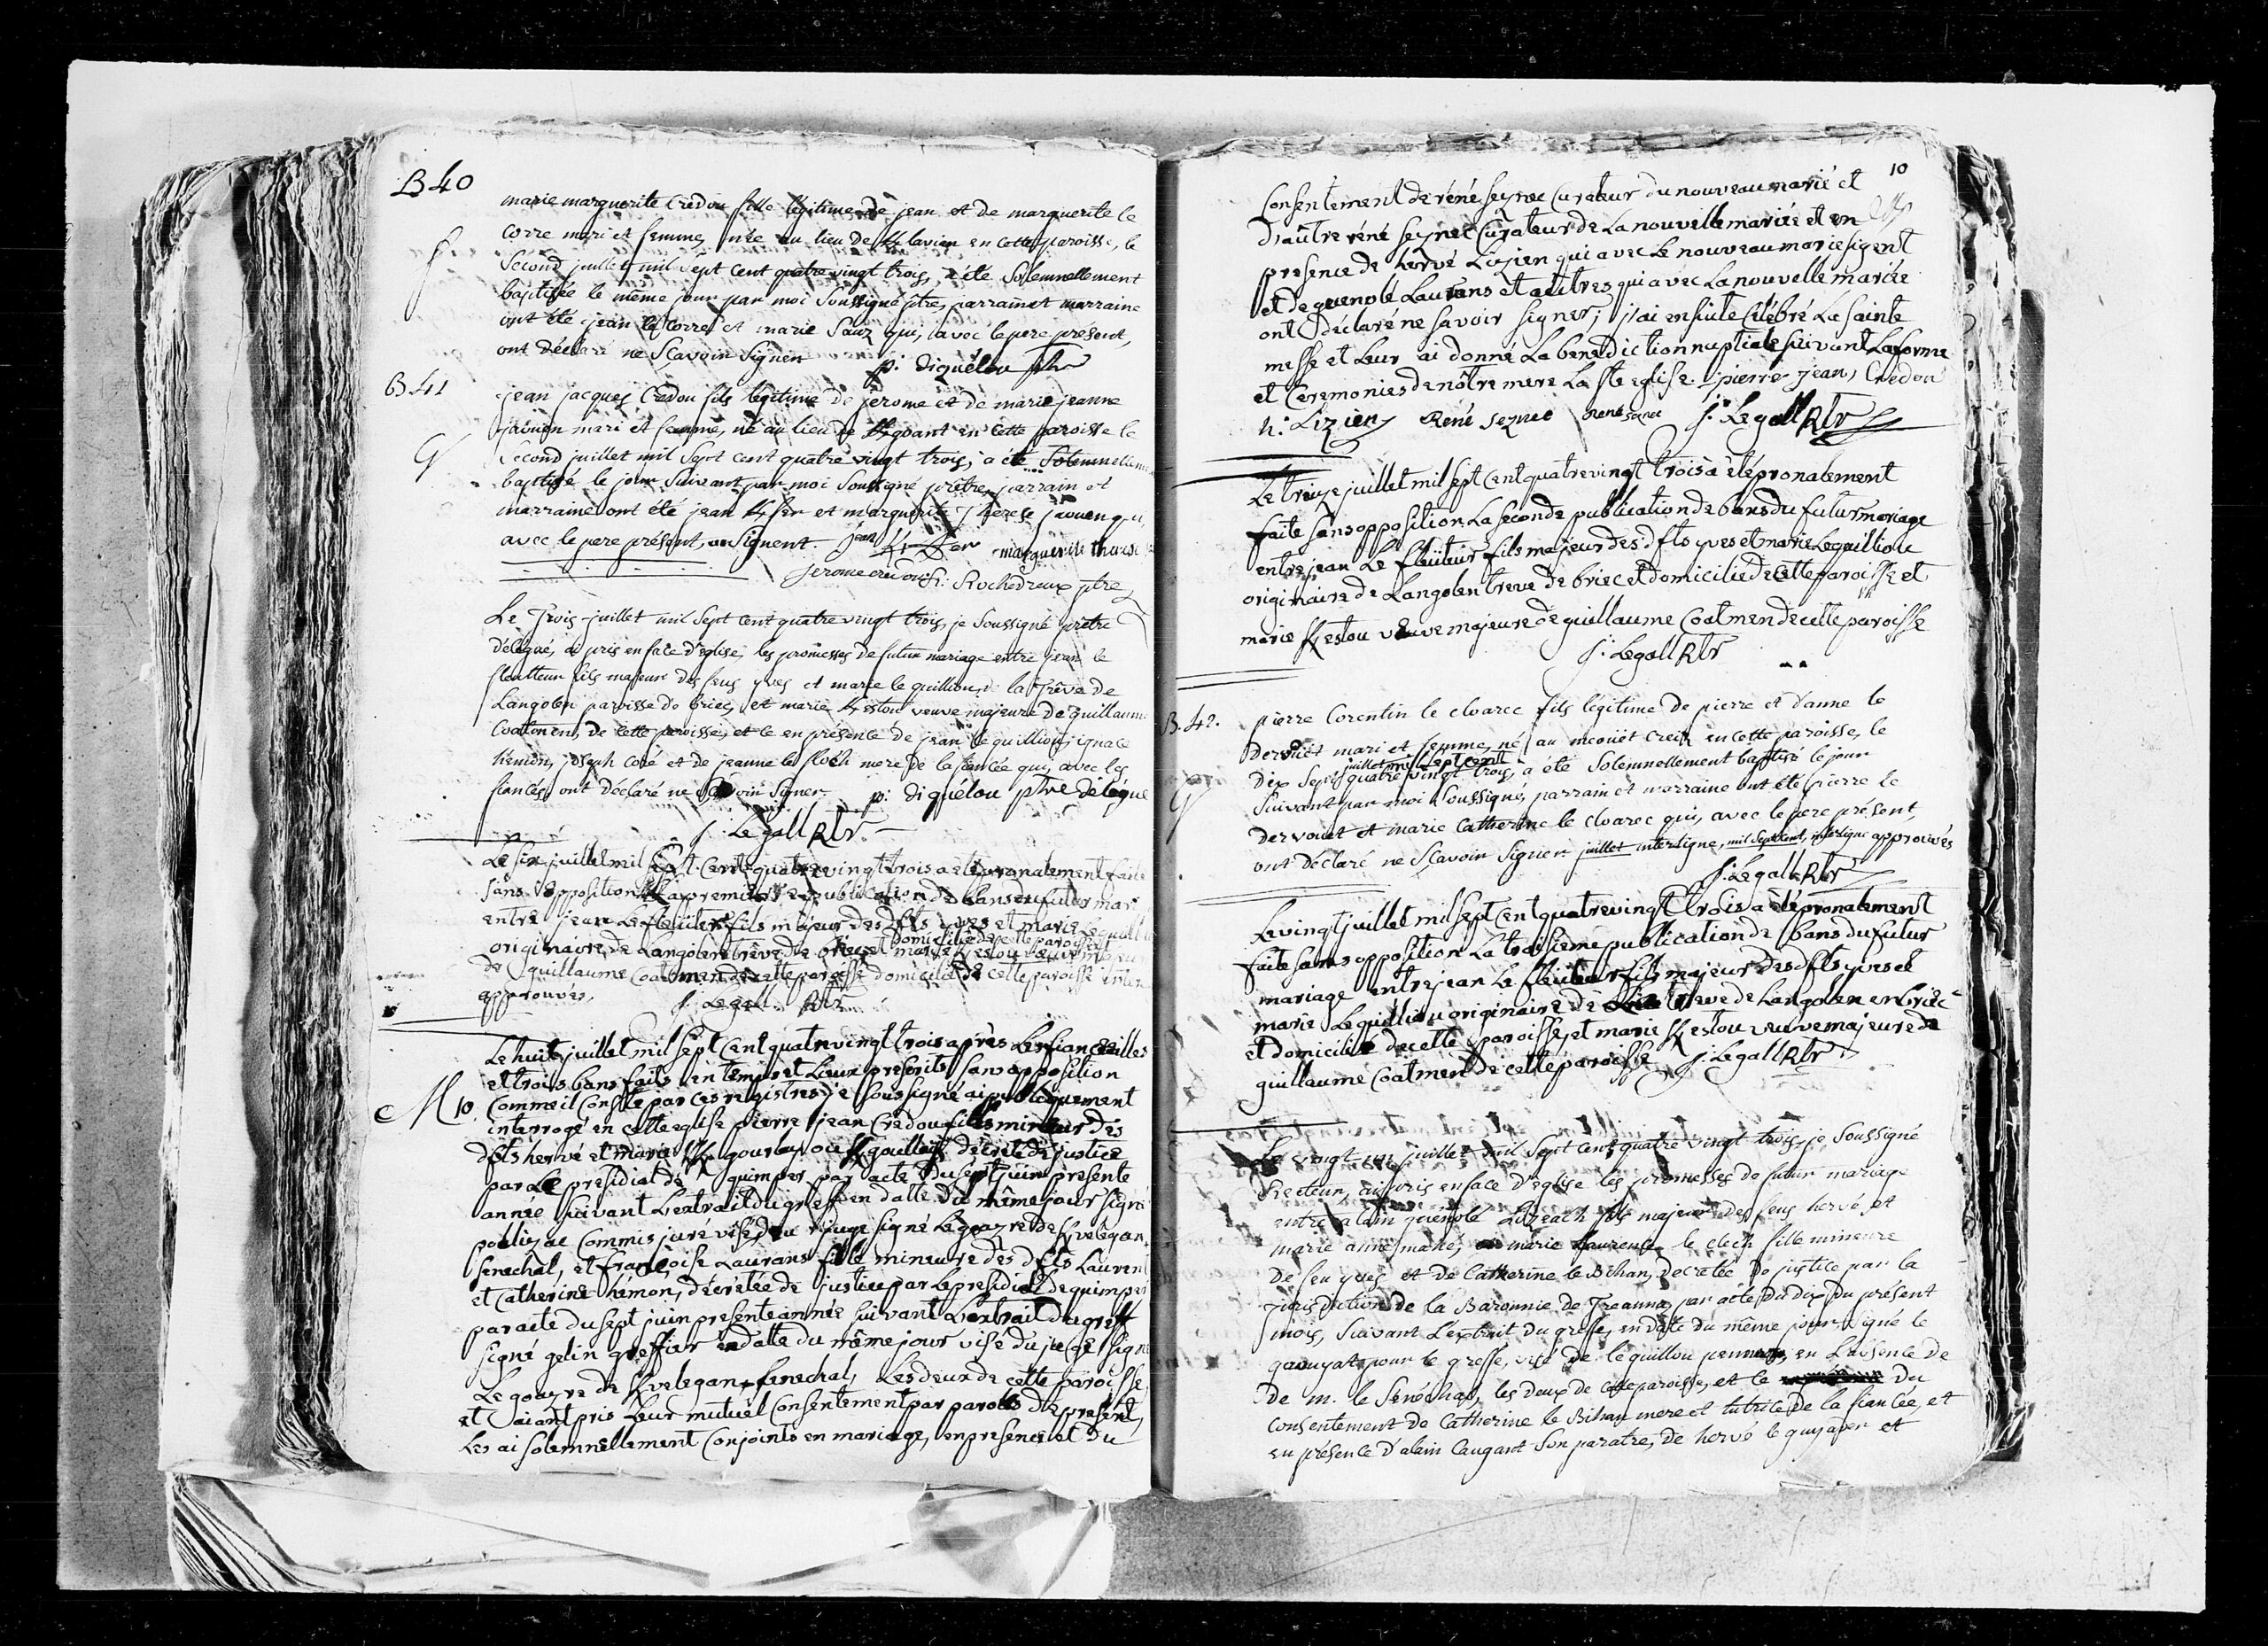 B 40
marie marguerite Credou fille légitime de jean et de marguerite le
corre mari et femme, née au lieu de en cette paroisse, le
f.
Second juillet mil Sept cent quatre vingt trois, a été Solemnellement
baptisée le même jour par moi Soussigné ptre, parrain et marraine
ont été jean le corre et marie qui, avec le pere présent,
ont déclaré ne Sçavoir Signer p: diquélou ptre
B 41
jean jacques Credou fils légitime de jerome et de marie jeanne
jaouen mari et femme, né au lieu de en cette paroisse le
G
Second juillet mil Sept cent quatre vingt trois, a été Solemnellem
baptisé le jour Suivant par moi Soussigné prêtre, parrain et
marraine ont été jean et marguerite Therese jaouen qui
avec le pere présent, ont Signent. jean marguerite therese
jerome credou R: Rochedreux ptre
Le Trois juillet mil Sept cent quatre vingt trois, je Soussigné prêtre
délégué, ai pris en face d'eglise, les promesses de futur mariage entre jean le
fleutteur fils majeur des feus yves et marie le quilliou, de la Trêve de
Langolen paroisse de briec, et marie Kestou veuve majeure de guillaume
Coatmen, de cette paroisse, et ce en présence de jean le quilliou, ignace
hémon, joseph Coré et de jeanne le floch mere de la fiancée qui, avec les
fiancés, ont déclaré ne Sçavoir Signer. p: diquélou ptre délégué
j: Legall Rtr
Le Six juillet mil Sept Cent quatre vingt trois a eté pronalement faite
sans opposition La premiere publication de bans du futur mar
entre jean Le fleuteur fils majeur des dfts yves et marie Lequilliou
domicilié de cette paroisse
originaire de Langolen trêve de briec et marie Kestou veuve majeure
de guillaume Coatmen de cette paroisse domicilié de cette paroisse inter
approuvés. j: Legall Rtr
Le huit juillet mil Sept Cent quatre vingt trois après Les fiançailles
et trois bans faits en temps et Lieux prescrits sans opposition
M 10. Comme il Conste par ces registres je soussigné ai publiquement
interrogé en cette eglise pierre jean Credou fils mineur des
dfts hervé et marie Kgourlay ou Kgoulley décrété de justice
par Le presidial de quimper par acte du sept juin presente
année suivant L'extrait du greffe en datte du même jour signé
commis juré visé du juge signé Legoazre de Kvelegan
senechal, et françoise Laurans fille mineure des dfts Laurent
et Catherine hémon, décrétée de justice par Le presidial de quimper
par acte du sept juin presente année suivant L'extrait du greffe
signé gelin greffier en datte du même jour visé du juge signé
Le goazre de Kvelegan senechal, Les deux de cette paroisse
et aiant pris Leur mutuel Consentement par paroles de present
Les ai solemnellement Conjoints en mariage, en presence et du
10
Consentement de réné seznec Curateur du nouveau marié et
d'autre réné seznec Curateur de La nouvelle mariée et en
presence de hervé Lizien qui avec Le nouveau marié signent
et de guenolé Laurans et autres qui avec La nouvelle mariée
ont déclaré ne savoir signer; j'ai ensuite Célébré La sainte
messe et Leur ai donné La benediction nuptiale suivant La forme
et Ceremonies de nôtre mere La ste eglise. pierre jean Credou
h: Lizien René seznec rené seznec j: Legall Rtr
Le treize juillet mil sept Cent quatre vingt trois a été pronalement
faite sans opposition La seconde publication de bans du futur mariage
entre jean Le fleuteur fils majeur des dfts yves et marie Lequilliou
originaire de Langolen treve de briec et domicilié de Cette paroisse et
marie Kestou veuve majeure de guillaume Coatmen de cette paroisse
j: Legall Rtr
B. 42.
pierre Corentin le cloarec fils légitime de pierre et d'anne le
dervoët mari et femme, né au en cette paroisse, le
juillet mil Sept cent
dix Sept quatre vingt trois, a été Solemnellement baptisé le jour
G
Suivant par moi Soussigné, parrain et marraine ont été pierre le
dervouet et marie Catherine le cloarec qui, avec le pere présent,
ont déclaré ne Sçavoir Signer. juillet interligne, mil Sept cent, interligne approuvés
j: Legall Rtr
Le vingt juillet mil sept Cent quatre vingt trois a été pronalement
faite sans opposition La troisieme publication de bans du futur
mariage entre jean Le fleuteur fils majeur des dfts yves et
marie Lequilliou originaire de La treve de Langolen en briec
et domicilié de cette paroisse, et marie Kestou veuve majeure de
guillaume Coatmen de cette paroisse j: Legall Rtr
Le vingt un juillet mil Sept cent quatre vingt trois, je Soussigné
Recteur, ai pris en face d'eglise les promesses de futur mariage
entre alain guénolé fils majeur des feus hervé et
marie anne mahé, et marie Laurence le clech fille mineure
de feu yves et de Catherine le Bihan, decretée de justice par la
jurisdiction de la Baronnie de Treanna, par acte du dix du présent
mois, Suivant L'extrait du greffe, en date du même jour, signé le
pour le greffe, visé de le quillou pennanros, en L'absence de
de m. le Sénéchal, les deux de cette paroisse, et ce du
consentement de Catherine le Bihan mere et tutrice de la fiancée, et
en présence d'alain Caugant Son paratre, de hervé le quyaver et